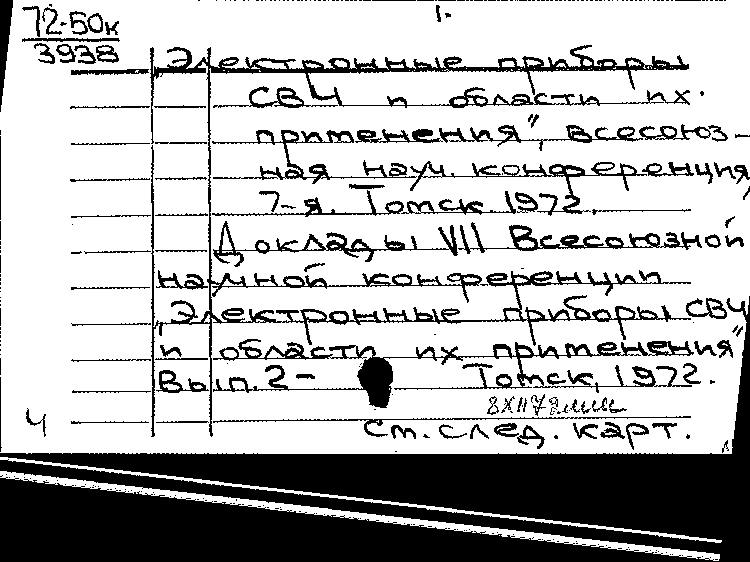 72-50к
3938
1.
"Электронные приборы
СВЧ и области их
применения", Всесоюз-
ная науч. конференция,
7-я. Томск. 1972.
Доклады VII Всесоюзной
научной конференции
"Электронные приборы СВЧ
и области их применения"
Вып. 2- Томск, 1972.
Ч
См. след. карт.